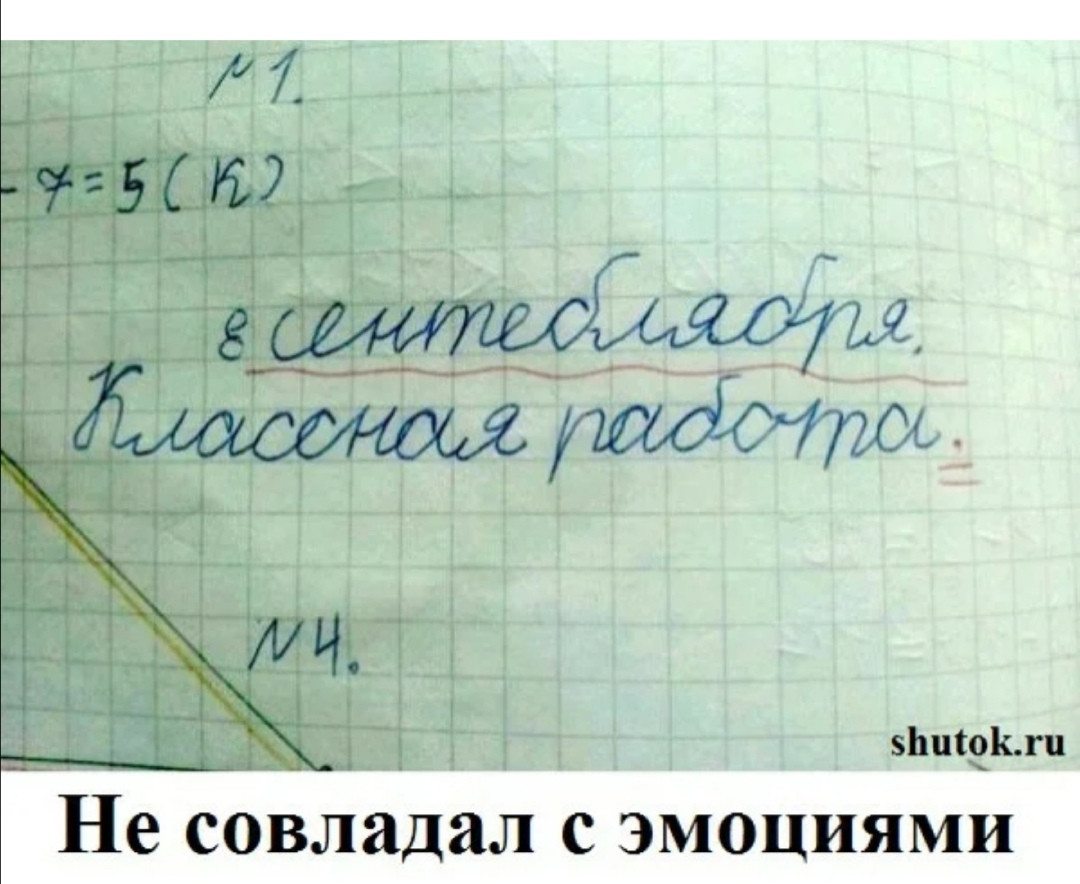 №1.
- 7 = 5 (К)
8 сентеблября.
Классная работа.
№4.
shutok.ru
Не совладал с эмоциями